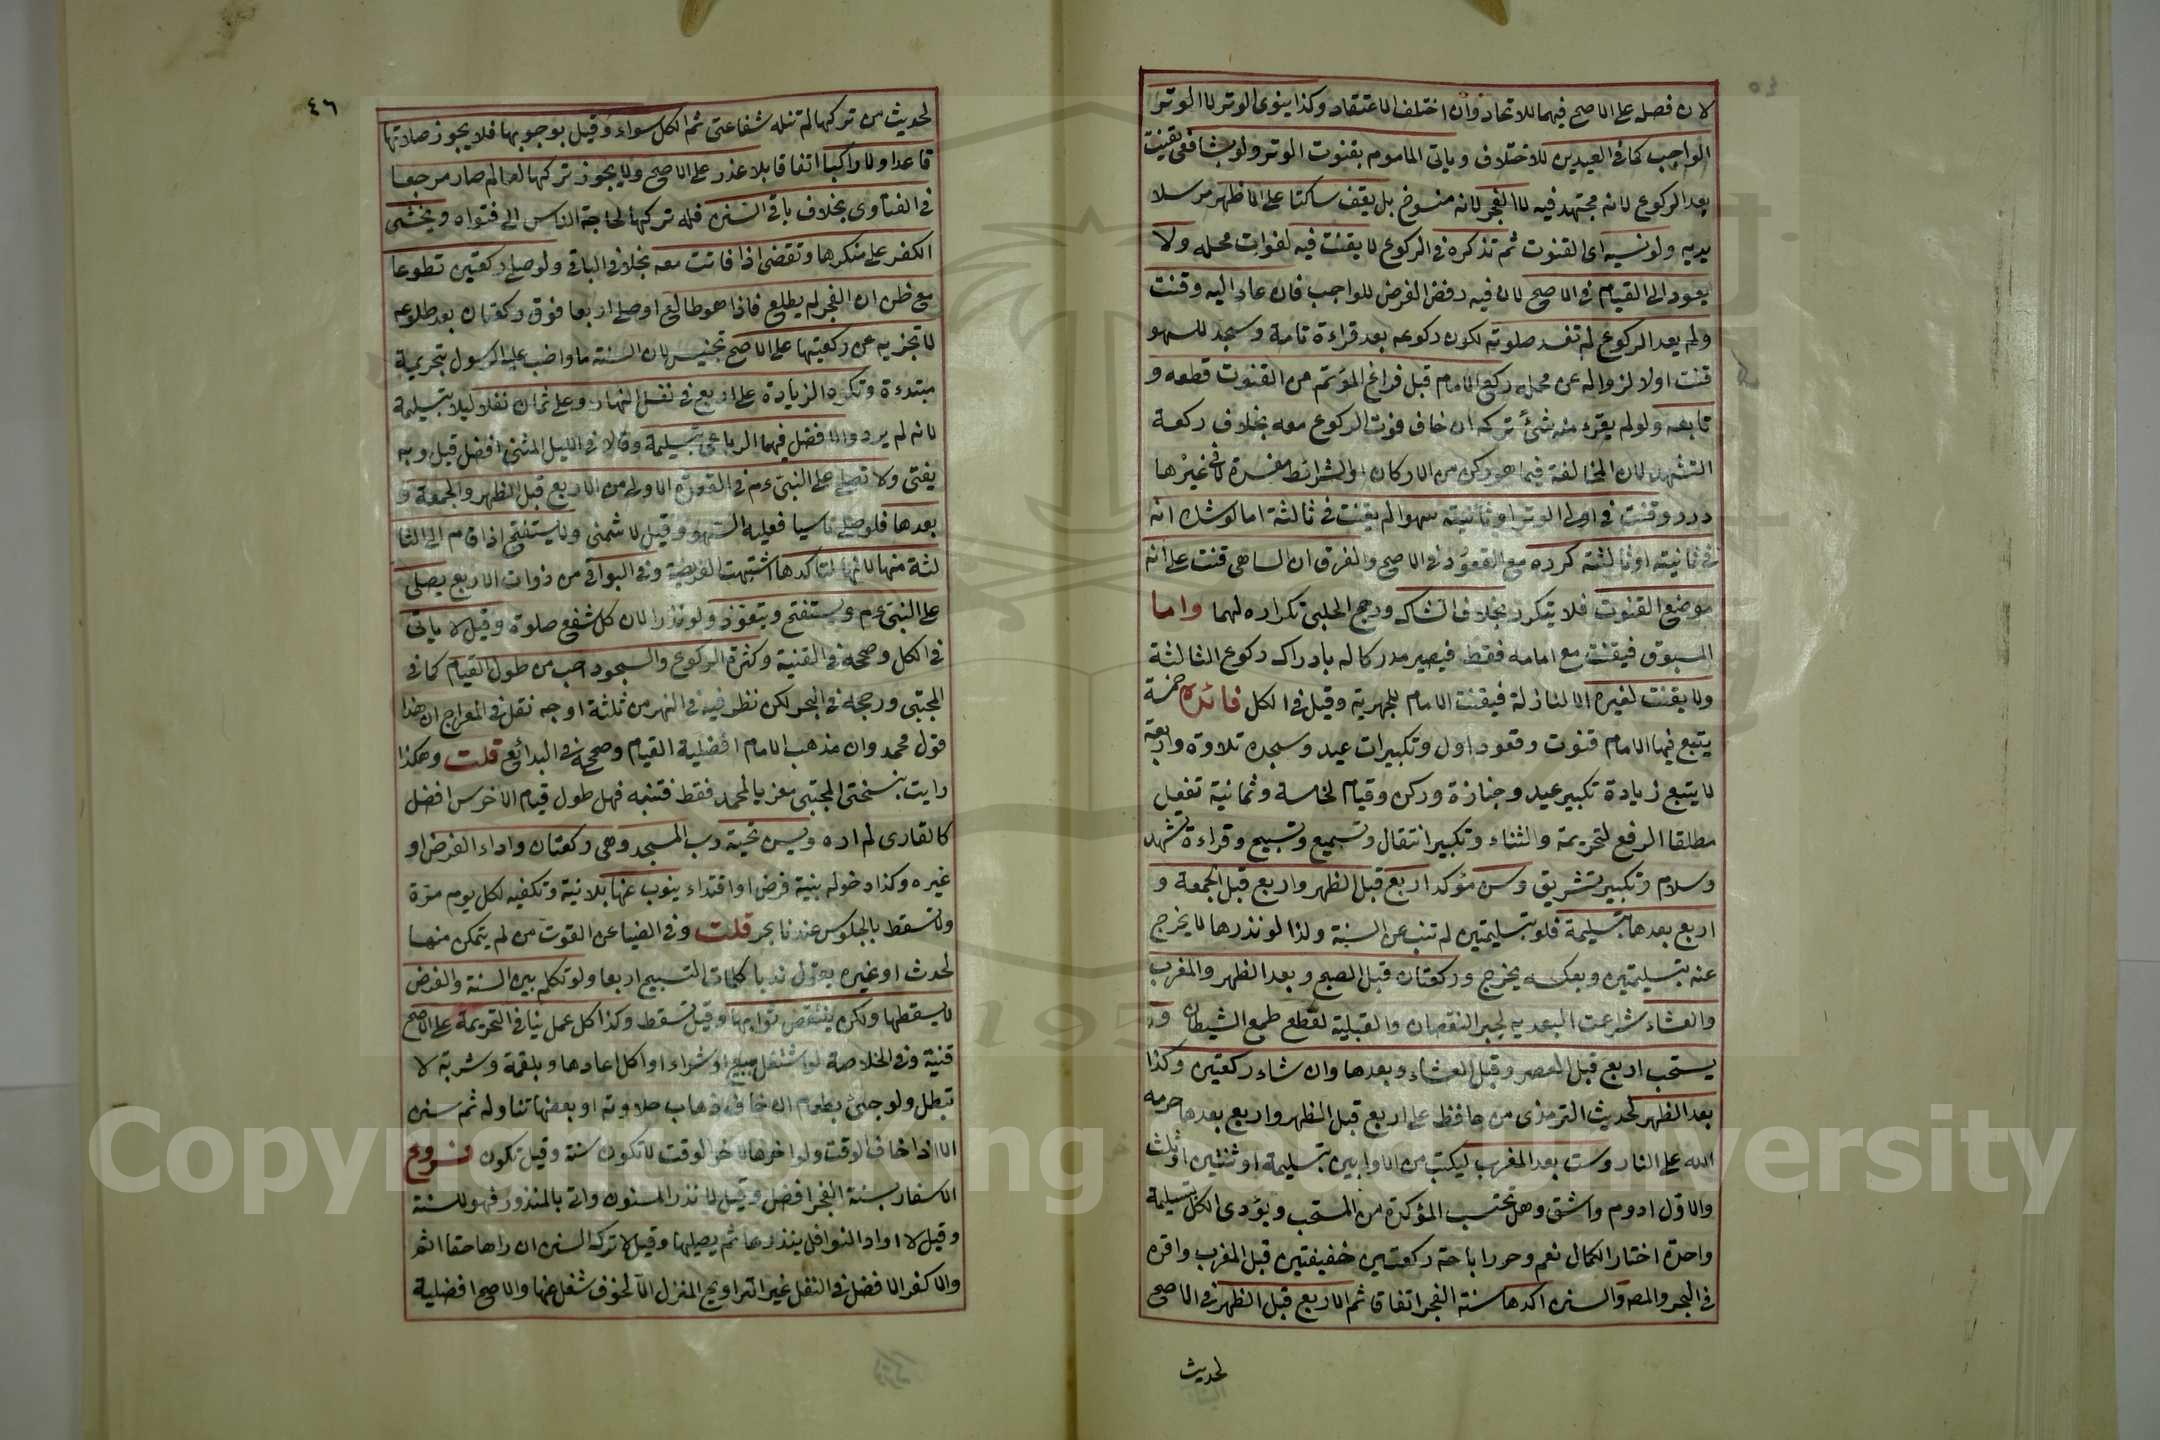 لا ان فصله على الاصح فيهما للاتحاد وان اختلف الاعتقاد وكذا ينوى الوتر لا الوتر
الواجب كما فى العيدين للاختلاف وياتى الماموم بقنوت الوتر ولو بشافعى يقنت
بعد الركوع لانه مجتهد فيه لا الفجر لانه منسوخ بل يقف ساكتا على الاظهر مرسلا
يديه ولو نسيه اى القنوت ثم تذكره فى الركوع لا يقنت فيه لفوات محله ولا
يعود الى القيام فى الاصح لان فيه رفض الفرض للواجب فان عاد اليه وقنت
ولم يعد الركوع لم تفسد صلوته لكون ركوعه بعد قراءة تامة وسجد للسهو
قنت اولا لزواله عن محله ركع الامام قبل فراغ المؤتم من القنوت قطعه و
تابعه ولو لم يقرء منه شئ تركه ان خاف فوت الركوع معه بخلاف ركعة
التشهد لان المخالفة فيما هو ركن من الاركان او الشرائط مفسدة لا فى غيرها
درر وقنت فى اولى الوتر او ثانيته سهوا لم يقنت فى ثالثة اما لو شك انه
فى ثانيته او ثالثته كرره مع القعود فى الاصح والفرق ان الساهى قنت على انه
موضع القنوت فلا يتكرر بخلاف الشاك ورجح الحلبى تكراره لهما واما
المسبوق فيقنت مع امامه فقط فيصير مدركا له بادراك ركوع الثالثة
ولا يقنت لغيره الا لنازلة فيقنت الامام للجهرية وقيل فى الكل فائدة خمسة
يتبع فيها الامام قنوت وقعود اول وتكبيرات عيد وسجدة تلاوة واربعة
لا يتبع زيادة تكبير عيد وجنازة وركن وقيام لخامسة وثمانية تفعل
مطلقا الرفع لتحريمة والثناء وتكبير انتقال وتسميع وتسبيح وقراءة تشهد
وسلام وتكبير تشريق وسن مؤكدا اربع قبل الظهر واربع قبل الجمعة و
اربع بعدها بتسليمة فلو بتسليمتين لم تنب عن السنة ولذا لو نذرها لا يخرج
عنه بتسليمتين وبعكسه يخرج وركعتان قبل الصبح وبعد الظهر والمغرب
والعشاء شرعت البعدية لجبر النقصان والقبلية لقطع طمع الشيطان ود
يستحب اربع قبل العصر وقبل العشاء وبعدها وان شاء ركعتين وكذا
بعد الظهر لحديث الترمذى من حافظ على اربع قبل الظهر واربع بعدها حرمه
الله على النار وست بعد المغرب ليكتب من الاوابين بتسليمة او ثنتين او ثلث
والاول ادوم واشق وهل تحتسب المؤكدة من المستحب ويؤدى الكل بتسليمة
واحدة اختار الكمال نعم وحرر اباحة ركعتين خفيفتين قبل المغرب واقره
فى البحر والمص والسنن اكدها سنة الفجر اتفاقا ثم الاربع قبل الظهر فى الاصح
لحديث
٤٦
لحديث من تركها لم تنله شفاعتى ثم الكل سواء وقيل بوجوبها فلا يجوز صلاتها
قاعدا ولا راكبا اتفاقا بلا عذر على الاصح ولا يجوز تركها لعالم صار مرجعا
فى الفتاوى بخلاف باقى السنن فله تركها لحاجة الناس الى فتواه ويخشى
الكفر على منكرها وتقضى اذا فاتت معه بخلاف الباقى ولو صلى ركعتين تطوعا
مع ظن ان الفجر لم يطلع فاذا هو طالع او صلى اربعا فوق ركعتان بعد طلوعه
لا تجزيه عن ركعتيها على الاصح تجنيس لان السنة ما واضب عليه الرسول بتحريمة
مبتدءة وتكره الزيادة على اربع فى نفل النهار وعلى ثمان نفلا ليلا بتسليمة
لانه لم يرد والافضل فيهما الرباعى بتسليمة وقالا فى الليل المثنى افضل قيل وبه
يفتى ولا تصلى على النبى عم فى القعدة الاولى من الاربع قبل الظهر والجمعة و
بعدها فلو صلى ناسيا فعليه السهو وقيل لا شمنى ولا يستفتح اذا قام الى الثا
لثة منها لانها لتاكدها اشتبهت الفريضة وفى البواقى من ذوات الاربع يصلى
على النبى عم ويستفتح ويتعوذ ولو نذرا لان كل شفع صلوة وقيل لا ياتى
فى الكل وصححه فى القنية وكثرة الركوع والسجود احب من طول القيام كما فى
المجتبى ورجحه فى البحر لكن نظر فيه فى النهر من ثلثة اوجه نقل فى المعراج ان هذا
قول محمد وان مذهب الامام افضلية القيام وصححه فى البدائع قلت وهكذا
رايت بنسختى المجتبى معزيا لمحمد فقط فتنبه فهل طول قيام الاخرس افضل
كالقارى لم اره ويسن تحية رب المسجد وهى ركعتان واداء الفرض او
غيره وكذا دخوله بنية فرض او اقتداء ينوب عنها بلا نية وتكفيه لكل يوم مرة
ولا تسقط بالجلوس عندنا بحر قلت وفى الضيا عن القوت من لم يتمكن منها
لحدث او غيره يقول ندبا كلمات التسبيح اربعا ولو تكلم بين السنة والفرض
لا يسقطها ولكن ينتقض ثوابها وقيل تسقط وكذا كل عمل ينافى التحريمة على الاصح
قنية وفى الخلاصة لو اشتغل ببيع او شراء او اكل اعادها وبلقمة وشربة لا
تبطل ولو جئ بطعام ان خاف ذهاب حلاوته او بعضها تناوله ثم سنن
الا اذا خاف الوقت ولو اخرها لاخر الوقت لا تكون سنة وقيل تكون فروع
الاسفار بسنة الفجر افضل وقيل لا نذر المسنون واتى بالمنذور فهو للسنة
وقيل لا اراد النوافل ينذرها ثم يصليها وقيل لا ترك السنن ان راها حقا اثم
والا كفر الافضل فى النفل غير التراويح المنزل الا لخوف شغل عنها والاصح افضلية